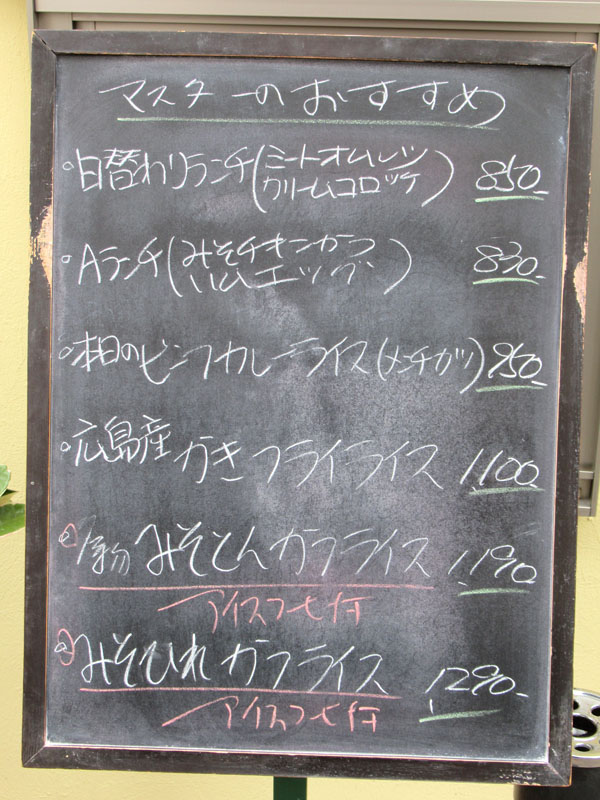 マスターのおすすめ
日替わりランチ(ミートオムレツ
クリームコロッケ) 850-
Aランチ(みそチキンカツ
ハムエッグ) 830-
本日のビーフカレーライス(メンチカツ) 950-
広島産 かきフライライス 1,100-
厚切 みそとんカツライス 1,190-
アイスコヒ付
みそひれカツライス 1,290-
アイスコヒ付